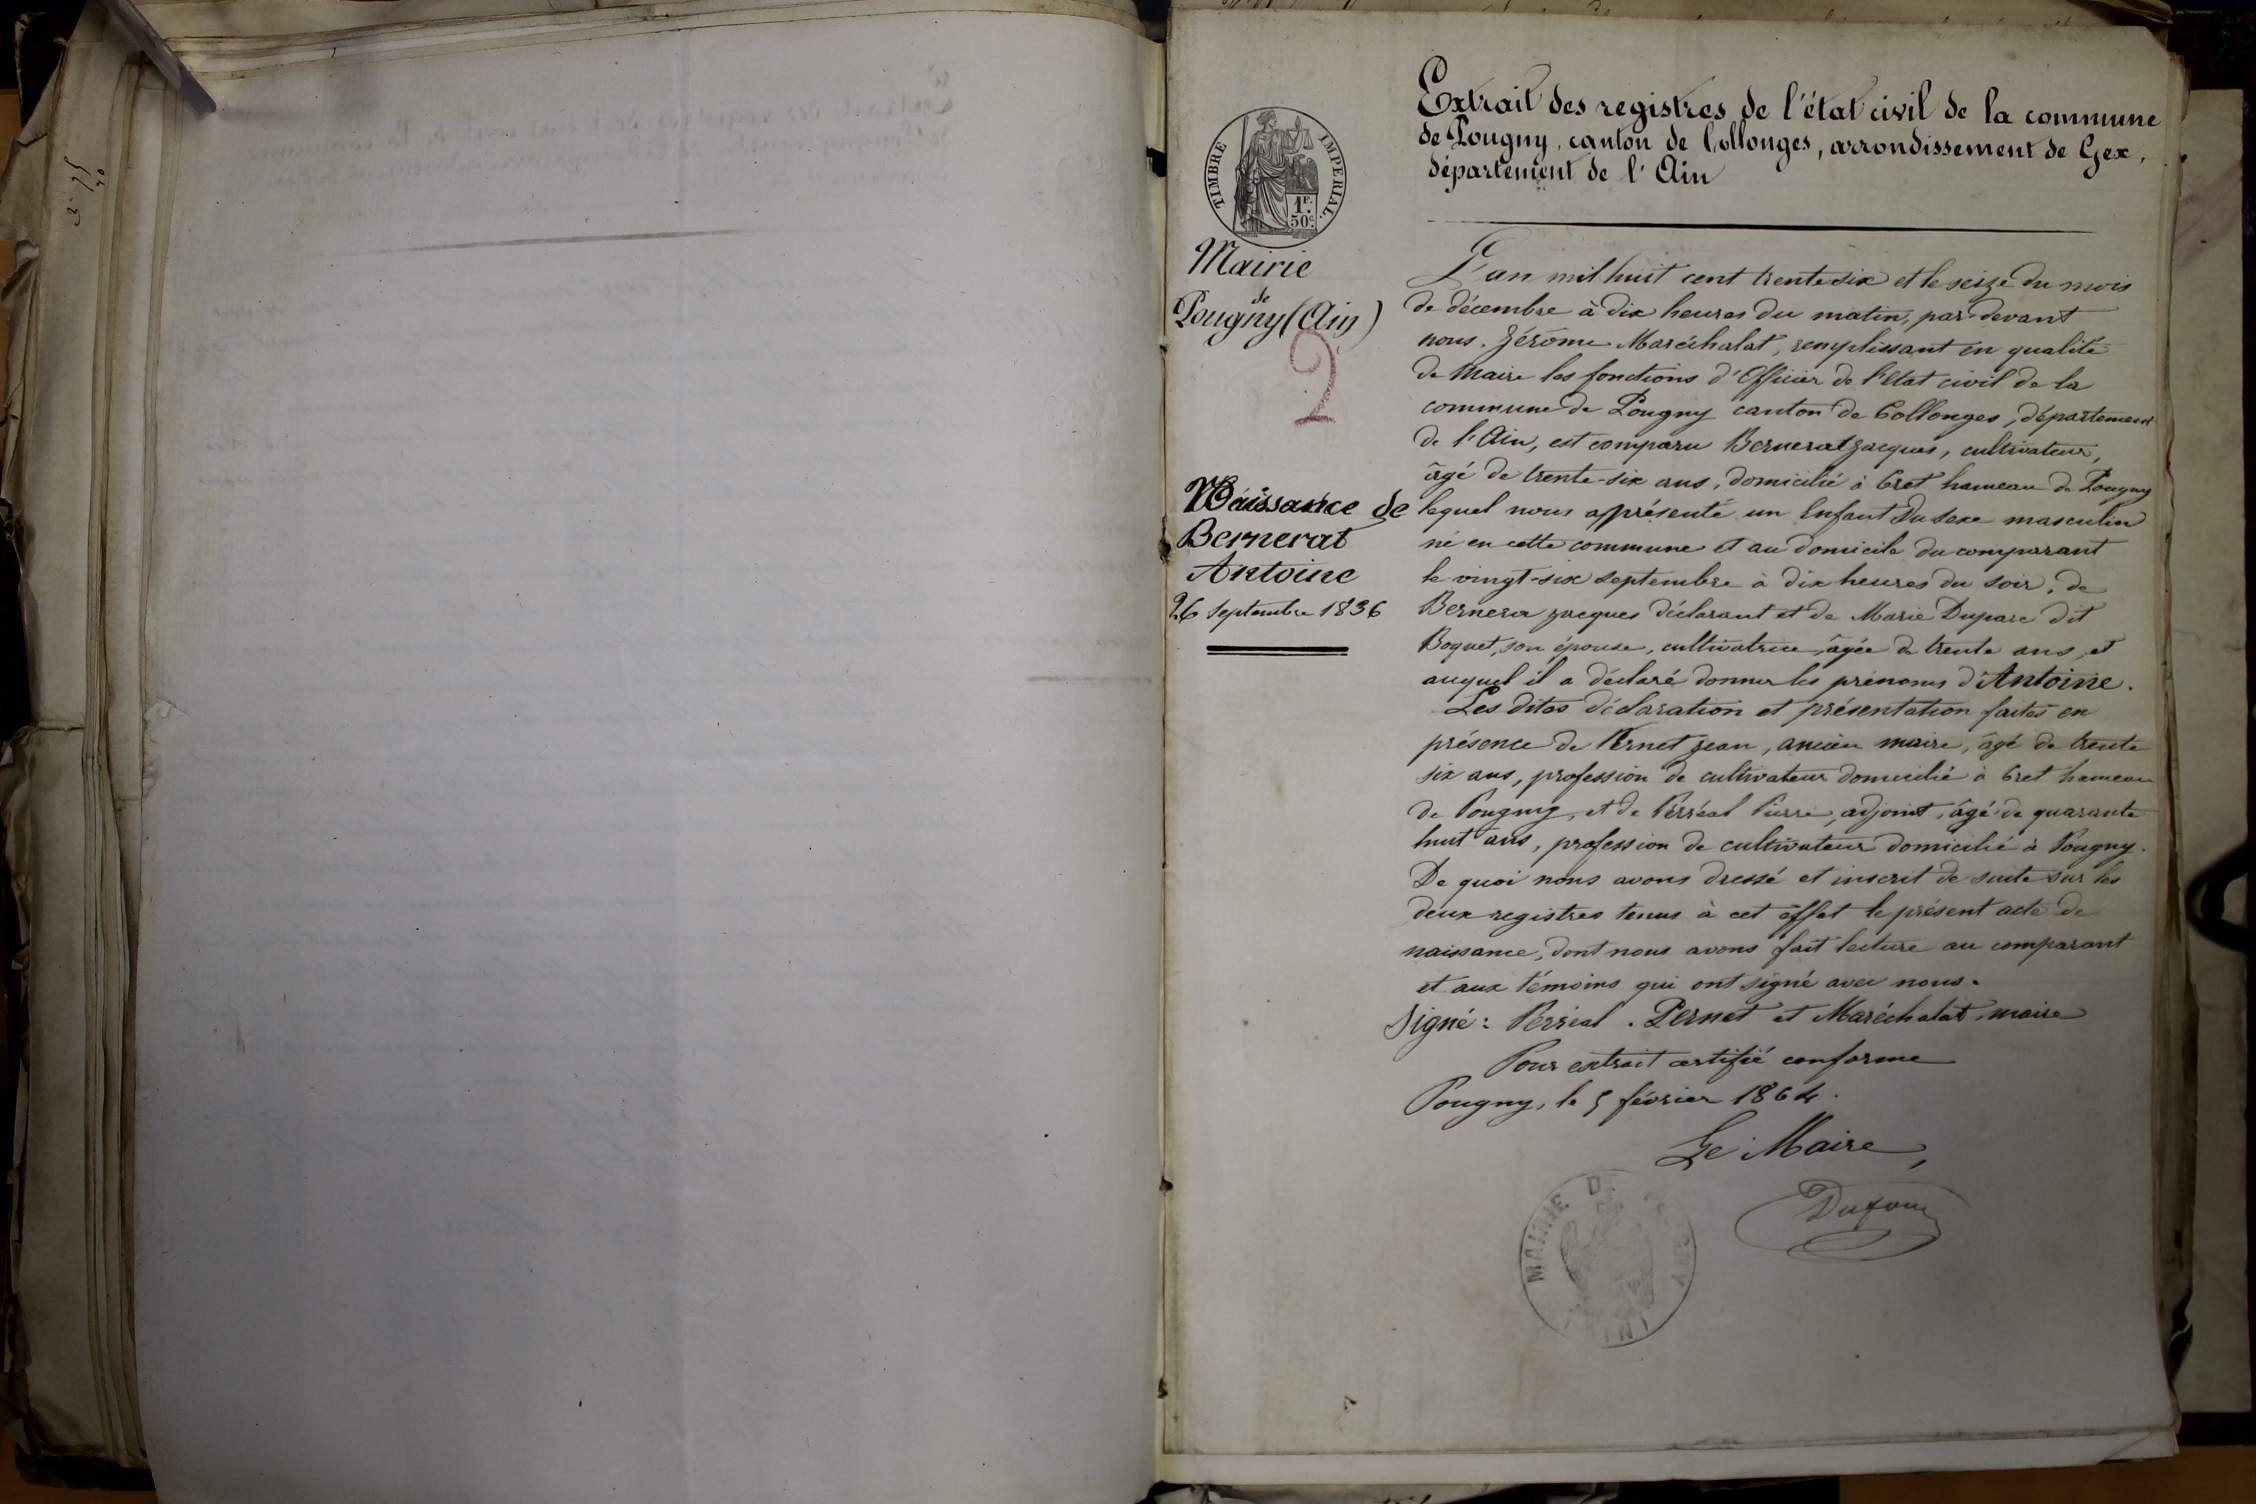 Extrait des registres de l'état civil de la commune
de Pougny, canton de Collonges, arrondissement de Gex,
département de l'Ain
TIMBRE IMPERIAL.
1F.
50c.
Mairie
de
Pougny (Ain)
2
Naissance de
Bernerat
Antoine
26 Septembre 1836
L'an mil huit cent trente six et le seize du mois
de décembre à dix heures du matin, par-devant
nous. Jérôme Maréchalat, remplissant en qualité
de Maire les fonctions d'Officier de l'Etat civil de la
commune de Pougny canton de Collonges, département
de l'Ain, est comparu Bernerat Jacques, cultivateur,
âgé de trente-six ans, domicilié à Cret hameau de Pougny
lequel nous a présenté un Enfant du sexe masculin
né en cette commune et au domicile du comparant
le vingt-six septembre à dix heures du soir, de
Bernera Jacques déclarant et de Marie Duparc dit
Boquet, son épouse, cultivatrice, âgée de trente ans, et
auquel il a déclaré donner les prénoms d'Antoine.
Les dites déclaration et présentation faites en
présence de Pernet Jean, ancien maire, âgé de trente
six ans, profession de cultivateur domicilié à Cret hameau
de Pougny, et de Perréal Pierre, adjoint, âgé de quarante
huit ans, profession de cultivateur domicilié à Pougny.
De quoi nous avons dressé et inscrit de suite sur les
deux registres tenus à cet effet le présent acte de
naissance, dont nous avons fait lecture au comparant
et aux témoins qui ont signé avec nous.
Signé : Perréal . Pernet et Maréchalat, maire
Pour extrait certifié conforme
Pougny, le 5 février 1864.
Le Maire,
Dufour
MAIRIE DE